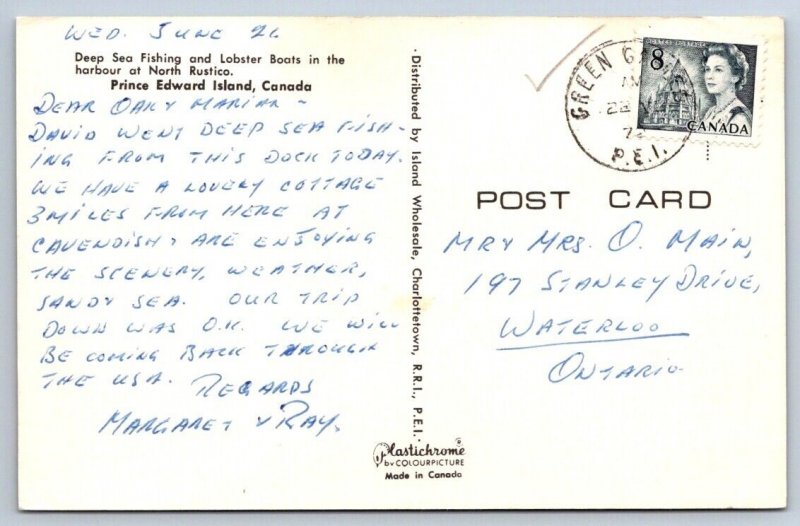 WED. JUNE 26
Deep Sea Fishing and Lobster Boats in the
harbour at North Rustico.
Prince Edward Island, Canada
DEAR OAKY MARIAN -
DAVID WENT DEEP SEA FISH-
ING FROM THIS DOCK TODAY.
WE HAVE A LOVELY COTTAGE
3 MILES FROM HERE AT
CAVENDISH & ARE ENJOYING
THE SCENERY, WEATHER,
SANDY SEA. OUR TRIP
DOWN WAS O.K. WE WILL
BE COMING BACK THROUGH
THE USA.
REGARDS
MARGARET & RAY.
• Distributed by Island Wholesale, Charlottetown, R.R.1., P.E.I. •
Plastichrome®
by COLOURPICTURE
Made in Canada
GREEN
AM
P.E.I.
POSTES POSTAGE
8
CANADA
POST CARD
MR & MRS. O. MAIN,
197 STANLEY DRIVE,
WATERLOO
ONTARIO